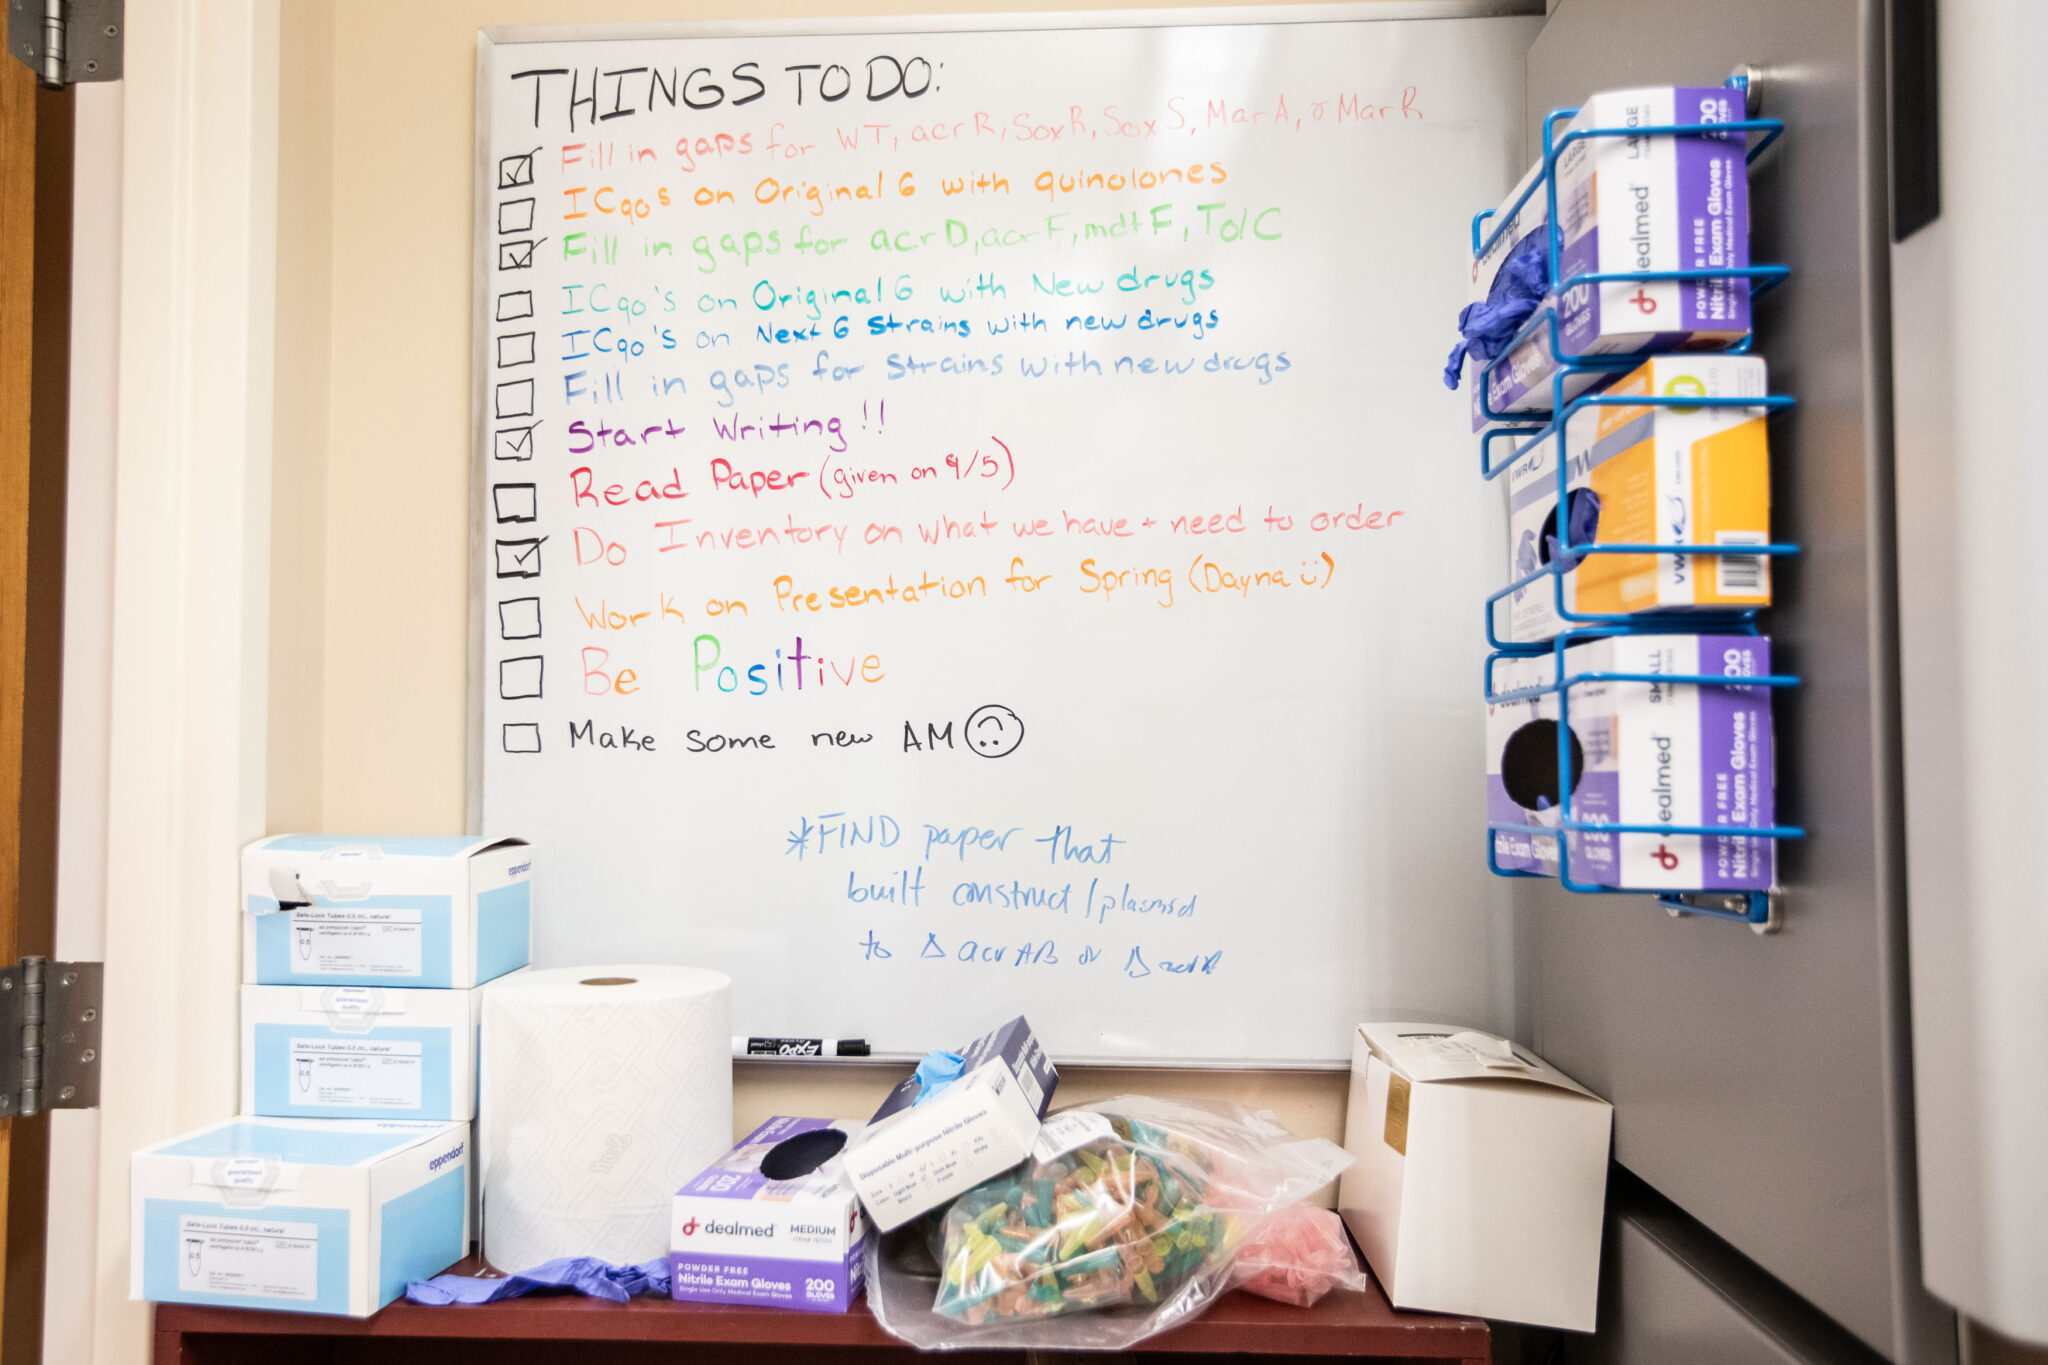 THINGS TO DO:
Fill in gaps for WT, acrR, SoxR, SoxS, MarA, r MarR
IC90s on Original 6 with quinolones
Fill in gaps for acrD, acrF, mdtF, TolC
IC90's on Original 6 with New drugs
IC90's on Next 6 strains with new drugs
Fill in gaps for strains with new drugs
Start Writing!!
Read Paper (given on 9/5)
Do Inventory on what we have + need to order
Work on Presentation for Spring (Dayna ü)
Be Positive
Make some new AM
*FIND paper that
built construct/plasmid
to Δ acrAB or Δ
EXPO
eppendorf
Safe-Lock Tubes 0.5 mL, natural
0.5
eppendorf
guaranteed
quality
Safe-Lock Tubes 0.5 mL, natural
0.5
eppendorf
guaranteed
quality
Safe-Lock Tubes 0.5 mL, natural
0.5
dealmed
MEDIUM
POWDER FREE
Nitrile Exam Gloves
Single Use Only Medical Exam Gloves
200
GLOVES
Disposable Multi-purpose Nitrile Gloves
LARGE
dealmed
POWDER FREE
Nitrile Exam Gloves
200
GLOVES
VWR
M
VWR
SMALL
dealmed
POWDER FREE
Nitrile Exam Gloves
200
GLOVES